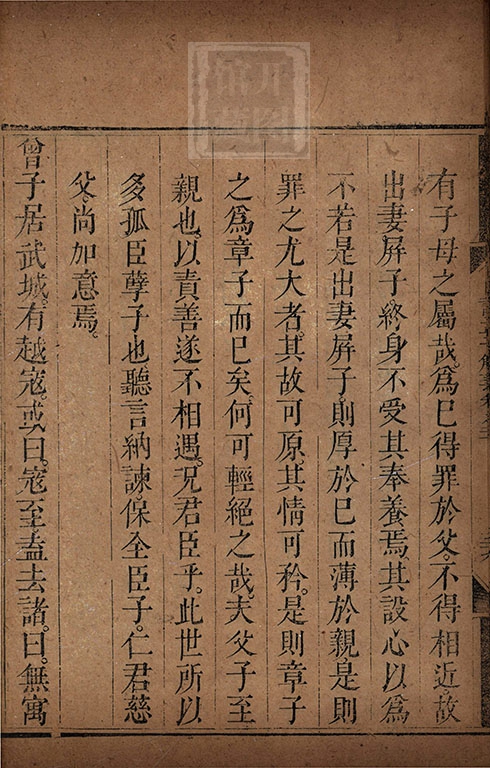 有子母之屬哉。爲已得罪於父。不得相近。故
出妻屏子。終身不受其奉養焉。其設心以爲
不若是出妻屏子。則厚於已而薄於親。是則
罪之尤大者。其故可原。其情可矜。是則章子
之爲章子而已矣。何可輕絕之哉。夫父子至
親也。以責善遂不相遇。况君臣乎。此世所以
多孤臣孽子也。聽言納諫。保全臣子。仁君慈
父。尚加意焉。
曾子居武城。有越寇。或曰。寇至。盍去諸。曰。無寓